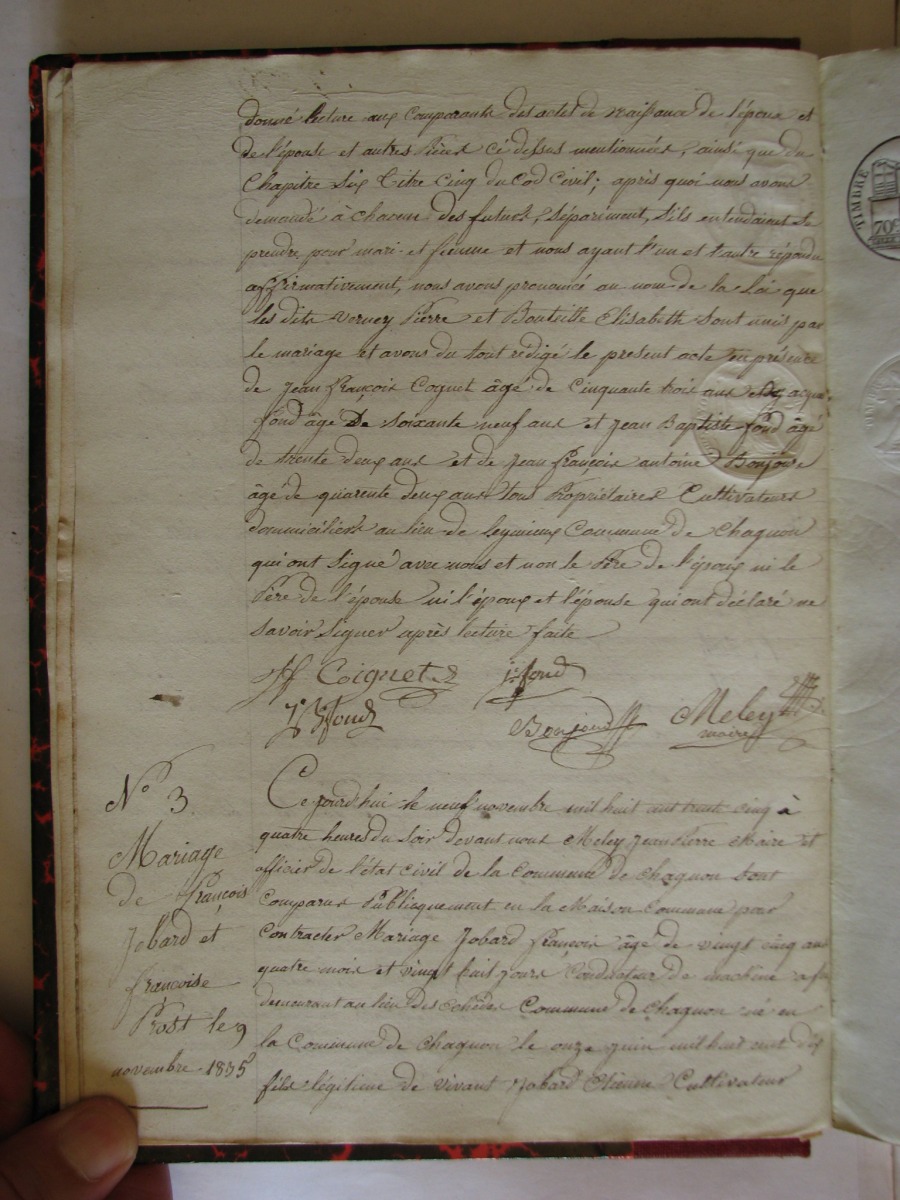 donné lecture aux comparants des actes de naissance de l'époux et
de l'épouse et autres pièces ci dessus mentionnées, ainsi que du
Chapitre six titre cinq du Cod Civil; après quoi nous avons
demandé à chacun des futurs, séparément, s'ils entendaient se
prendre pour mari et femme et nous ayant l'un et l'autre répondu
affirmativement, nous avons prononcé au nom de la Loi que
les dits Verney Pierre et Bouteille Elisabeth sont unis par
le mariage et avons du tout rédigé le present acte en présence
de Jean François Cognet âgé de Cinquante trois ans
fond âgé De soixante neuf ans et Jean Baptiste fond âgé
de trente deux ans et de Jean François antoine Bonjour
âgé de quarente deux ans tous Propriétaires Cultivateurs
domiciliers au lieu de Commune de Chagnon
qui ont signé avec nous et non le Père de l'époux ni le
Père de l'épouse ni l'époux et l'épouse qui ont déclaré ne
savoir signer après lecture faite
Coignet fond
fond
Bonjour Meley
maire
No 3
Mariage
de françois
Jobard et
françoise
Prost le 9
novembre 1835
Ce jourd'hui le neuf novembre mil huit cent trente cinq à
quatre heures du soir devant nous Meley Jean Pierre Maire et
officier de l'état civil de la Commune de Chagnon sont
comparus Publiquement en la Maison Commune pour
Contracter Mariage Jobard François âgé de vingt cinq ans
quatre mois et vingt huit jours Conducteur de machine a feu
demeurant au lieu des Commune de Chagnon né en
la Commune de Chagnon le onze juin mil huit cent dix
fils légitime de vivant Jobard Etienne Cultivateur
TIMBRE
70